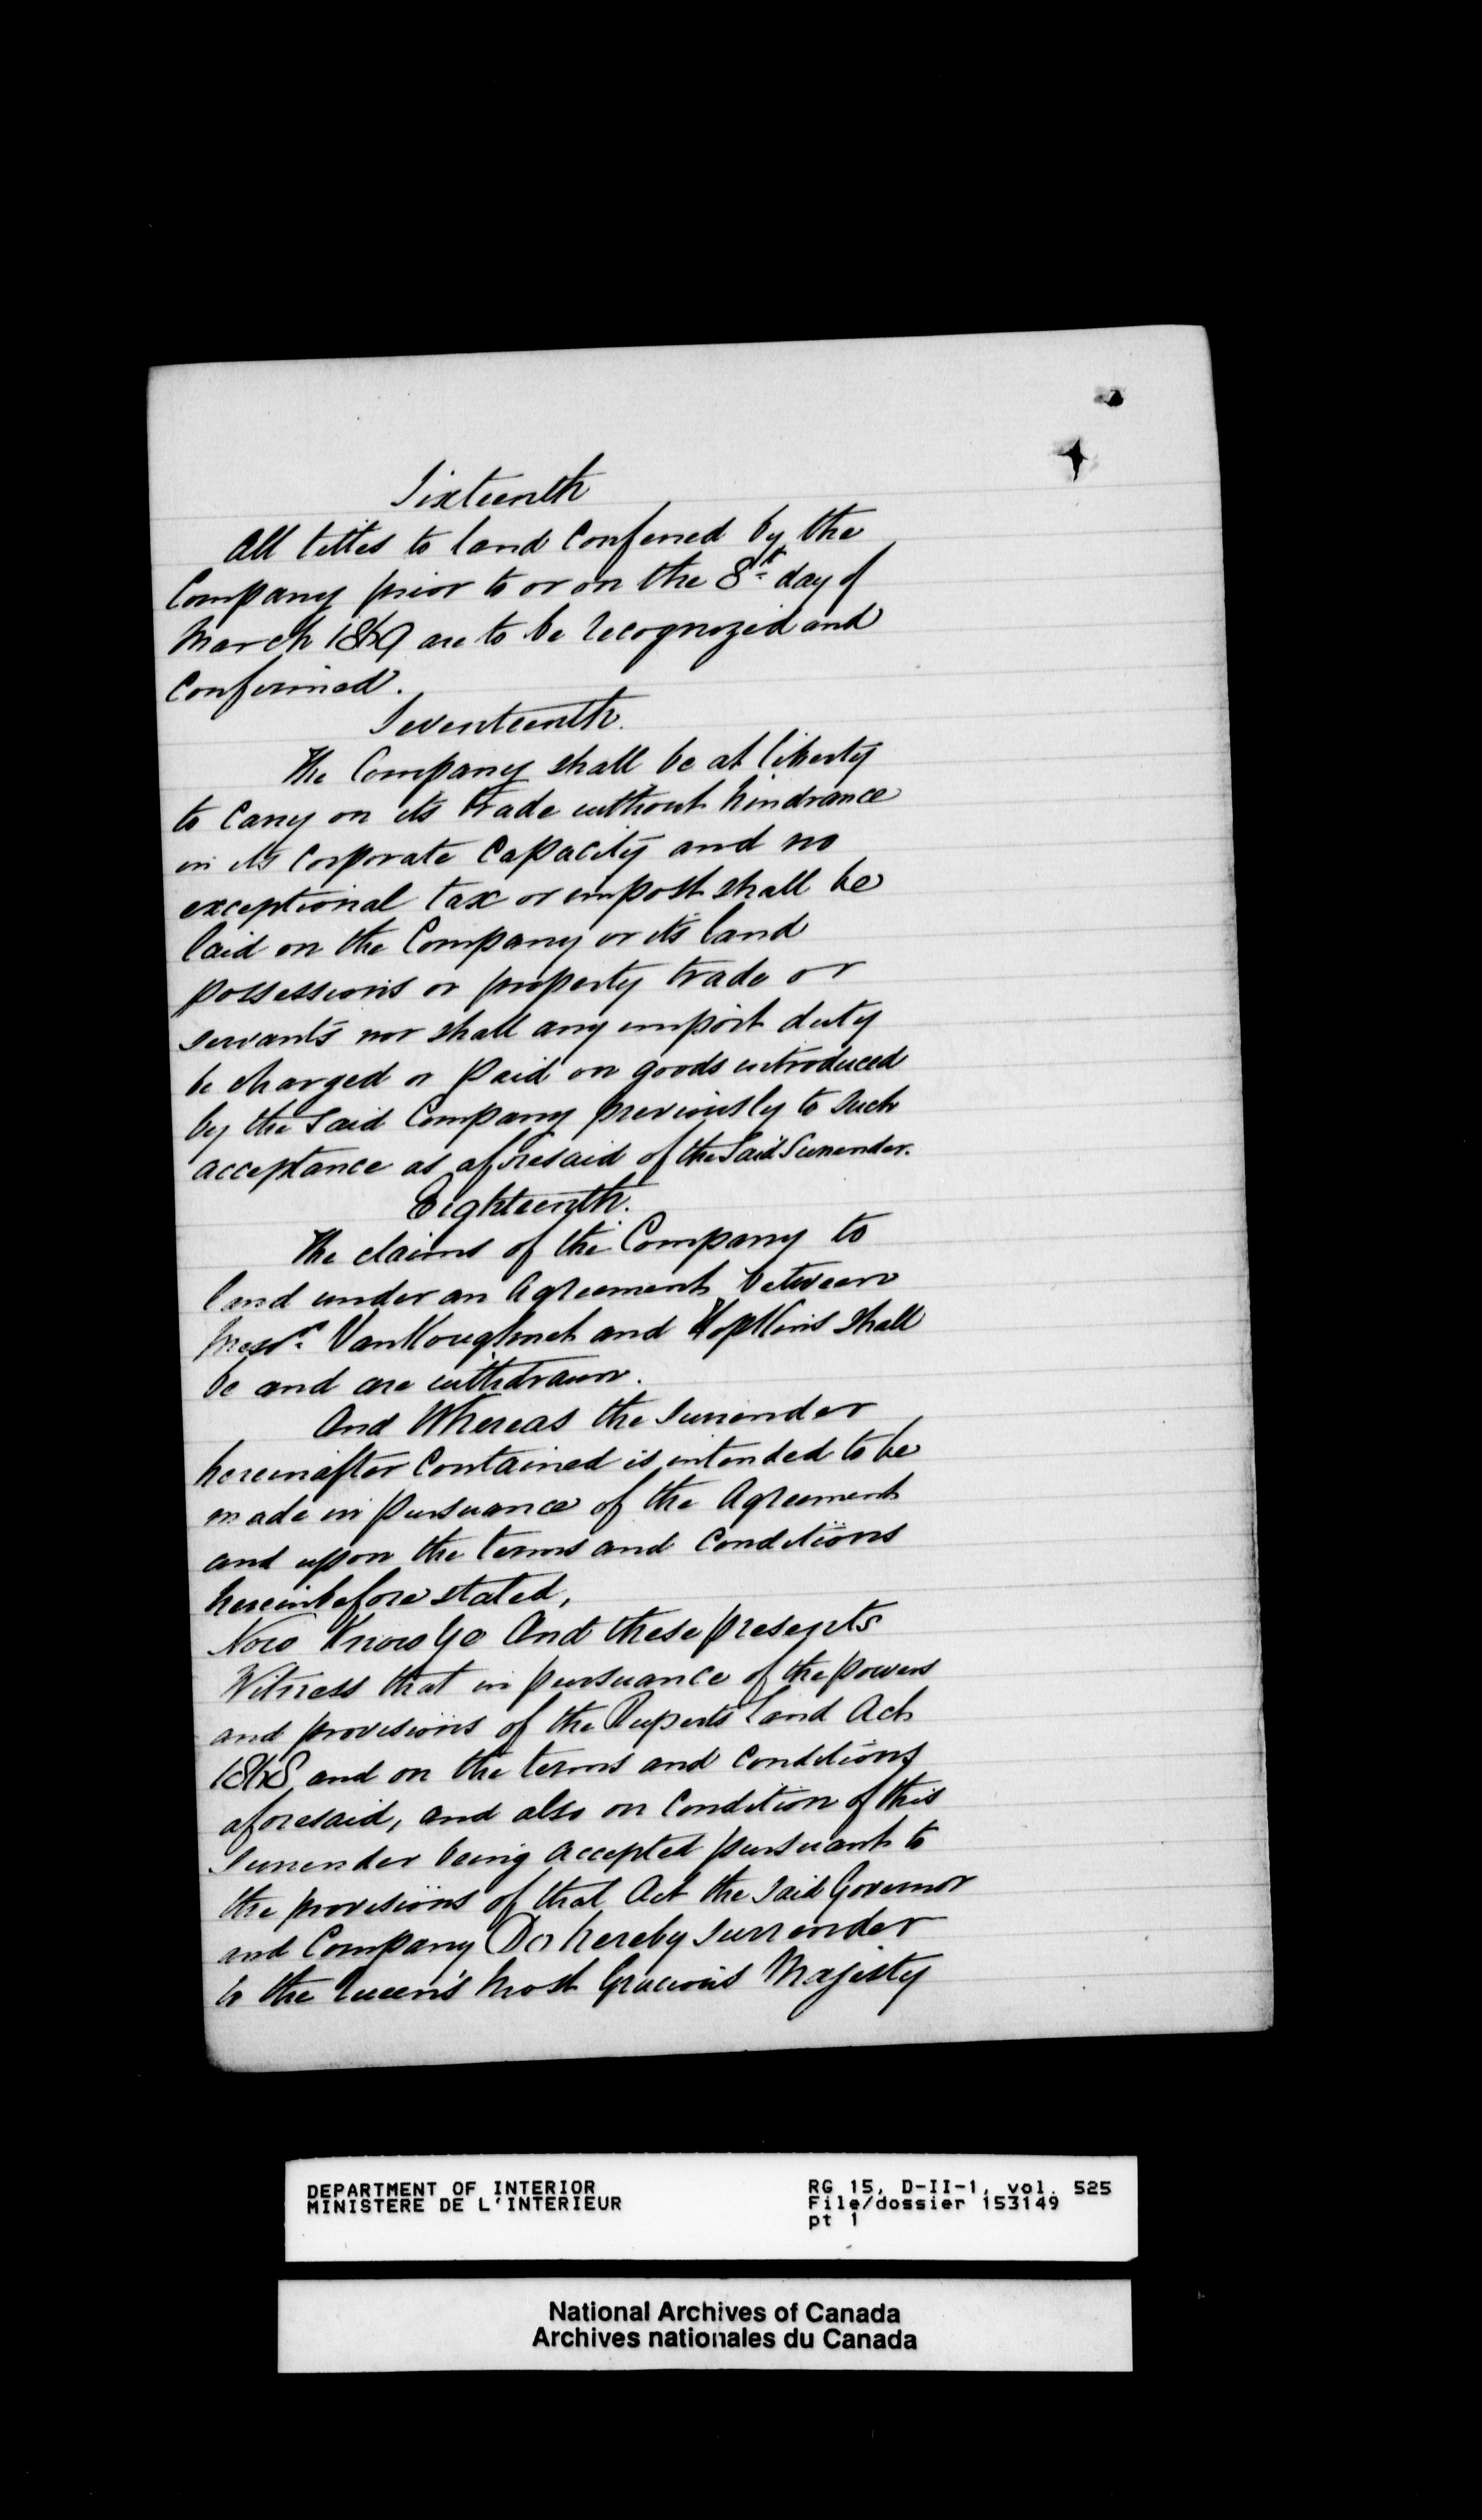 Sixteenth
All titles to land conferred by the
Company prior to or on the 8th day of
March 1869 are to be recognized and
confirmed.
Seventeenth.
The Company shall be at liberty
to carry on its trade without hindrance
in its corporate capacity and no
exceptional tax or impost shall be
laid on the Company or its land
possessions or property trade or
servants nor shall any import duty
be charged or paid on goods introduced
by the said Company previously to such
acceptance as aforesaid of the said Surrender.
Eighteenth.
The claims of the Company to
land under an Agreement between
Messrs. VanKoughnet and Hopkins shall
be and are withdrawn.
And Whereas the surrender
hereinafter contained is intended to be
made in pursuance of the Agreement
and upon the terms and conditions
hereinbefore stated,
Now Know Ye And these presents
Witness that in pursuance of the powers
and provisions of the Ruperts Land Act
1868 and on the terms and conditions
aforesaid, and also on condition of this
surrender being accepted pursuant to
the provisions of that Act the said Governor
and Company Do hereby surrender
to the Queen's Most Gracious Majesty
DEPARTMENT OF INTERIOR RG 15, D-II-1, vol. 525
MINISTERE DE L'INTERIEUR File/dossier 153149
pt 1
National Archives of Canada
Archives nationales du Canada